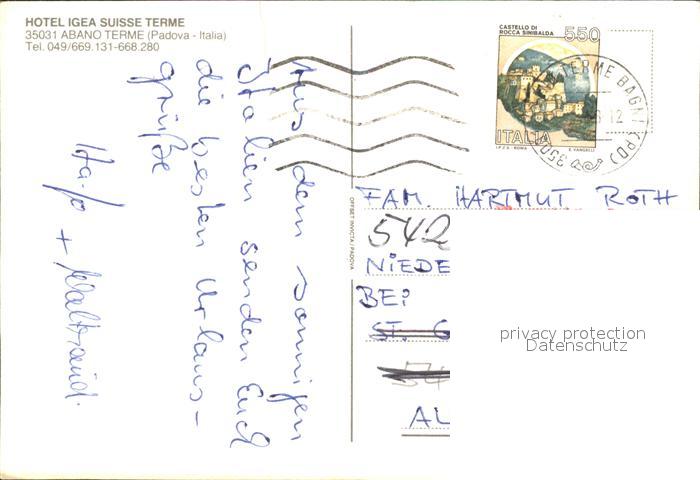 HOTEL IGEA SUISSE TERME
35031 ABANO TERME (Padova - Italia)
Tel. 049/669.131-668.280
Aus dem sonnigen
Italien senden Euch
die besten Urlaus-
grüße
Ha-Jo + Waltraud.
OFFSET INVICTA PADOVA
CASTELLO DI
ROCCA SINIBALDA
550
ITALIA
I.P.Z.S. ROMA
E. VANGELLI
TERME BAGNI (PD)
12
350
FAM. HARTMUT ROTH
542
NIEDE
BEI
ST. G
54
AL
privacy protection
Datenschutz